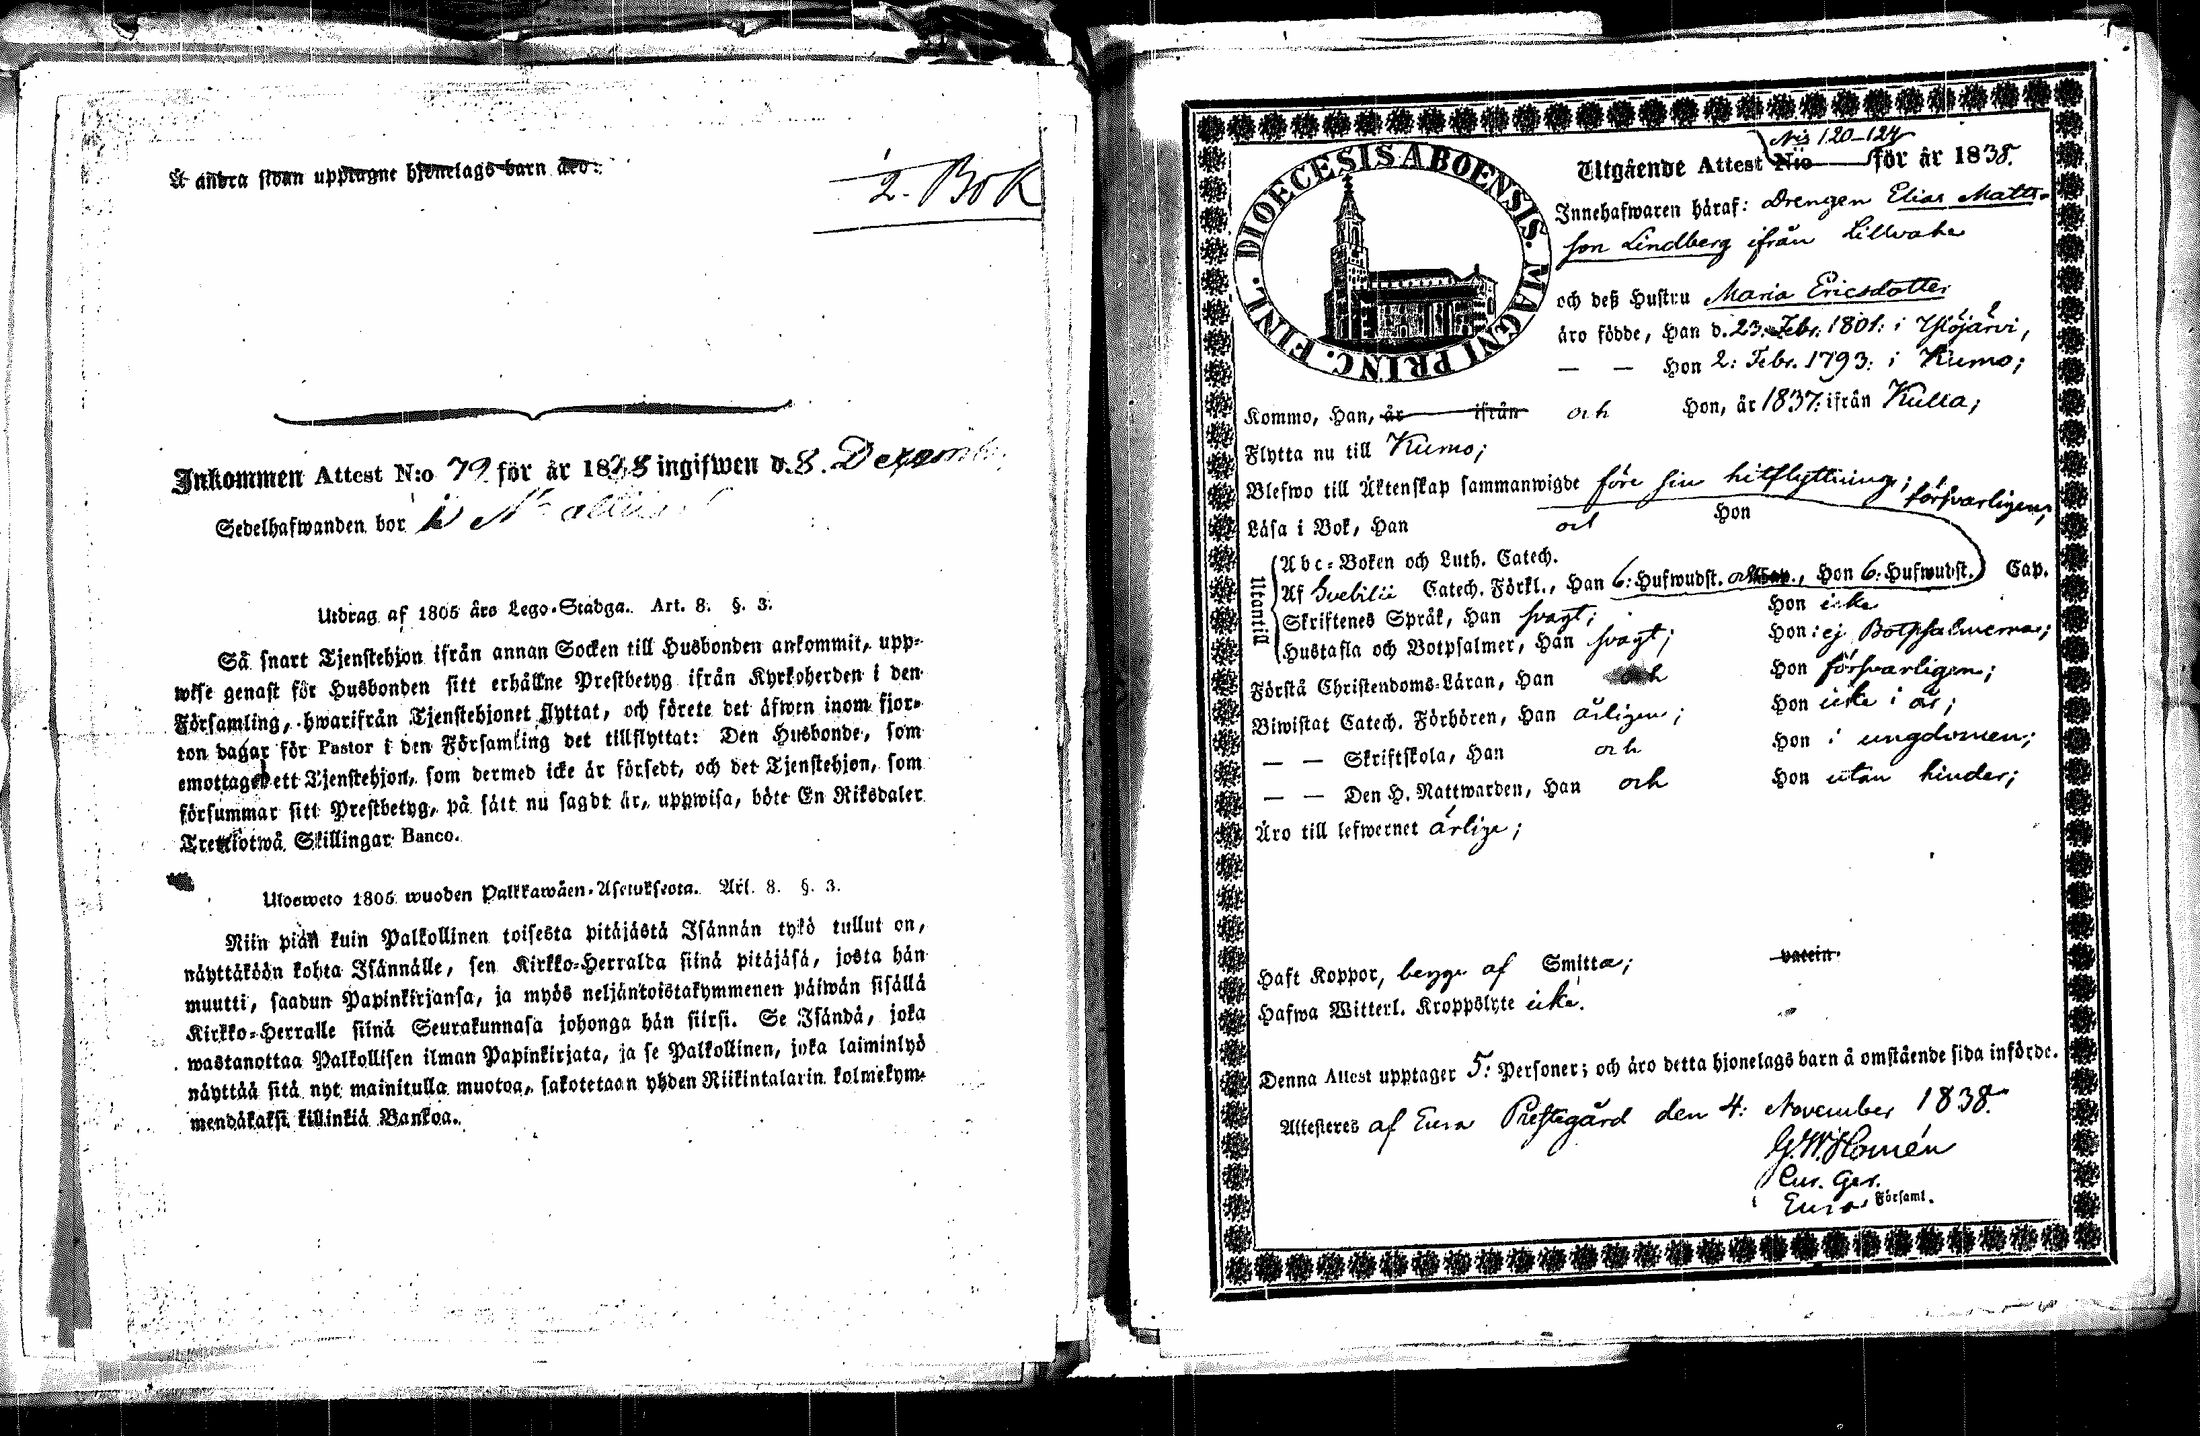 Å andra sidan upptagne hjonelags barn äro:
2. Bok
Inkommen Attest N:o 79 för år 1838 ingifwen d. 8. Decemb
Sedelhafwanden bor i
Utdrag af 1805 års Lego-Stadga. Art. 8. §. 3.
Så snart Tjenstehjon ifrån annan Socken till Husbonden ankommit, upp-
wise genast för Husbonden sitt erhållne Prestbetyg ifrån Kyrkoherden i den
Församling, hwarifrån Tjenstehjonet flyttat, och förete det äfwen inom fjor-
ton dagar för Pastor i den Församling det tillflyttat: Den Husbonde, som
emottager ett Tjenstehjon, som dermed icke är försedt, och det Tjenstehjon, som
försummar sitt Prestbetyg, på sätt nu sagdt är, uppwisa, böte En Riksdaler
Trettiotwå Skillingar Banco.
Ulosweto 1805 wuoden Palkkawäen-Asetuksesta. Art. 8. §. 3.
Niin piän kuin Palkollinen toisesta pitäjästä Isännän tykö tullut on,
näyttäköön kohta Isännälle, sen Kirkko-Herralda siinä pitäjäsä, josta hän
muutti, saadun Papinkirjansa, ja myös neljäntoistakymmenen päiwän sisällä
Kirkko-Herralle siinä Seurakunnasa johonga hän siirsi. Se Isändä, joka
wastanottaa Palkollisen ilman Papinkirjata, ja se Palkollinen, joka laiminlyö
näyttää sitä nyt mainitulla muotoa, sakotetaan yhden Riikintalarin kolmekym-
mendäkaksi killinkiä Bankoa.
DIOECESIS ABOENSIS. MAGNI PRINC. FINL.
N:is 120-124
Utgående Attest N:o för år 1838.
Innehafwaren häraf: Drengen Elias Matts-
son Lindberg ifrån
och deß Hustru Maria Ericsdotter
äro födde, Han d. 23: Febr. 1801: i Ylöjärvi,
— — Hon 2: Febr. 1793: i Kumo;
Kommo, Han, år ifrån och Hon, år 1837: ifrån Kulla;
Flytta nu till Kumo;
Blefwo till Äktenskap sammanwigde före sin hitflyttning;
Läsa i Bok, Han och Hon försvarligen;
Utantill
Abc-Boken och Luth. Catech.
Af Svebilii Catech. Förkl., Han 6: Hufwudst. och Cap., Hon 6: Hufwudst. Cap.
Skriftenes Språk, Han svagt; Hon icke
Hustafla och Botpsalmer, Han svagt; Hon: ej Botpsalmerna;
Förstå Christendoms-Läran, Han och Hon försvarligen;
Biwistat Catech. Förhören, Han årligen; Hon icke i år;
— — Skriftskola, Han och Hon i ungdomen;
— — Den H. Nattwarden, Han och Hon utan hinder;
Äro till lefwernet ärlige;
Haft Koppor, begge af Smitta; vaccin.
Hafwa Witterl. Kroppslyte icke.
Denna Attest upptager 5: Personer; och äro detta hjonelags barn å omstående sida införde.
Attesteres af Eura Prestegård den 4: November 1838.
G. W. Homén
Cur. Ger.
i Eura Församl.